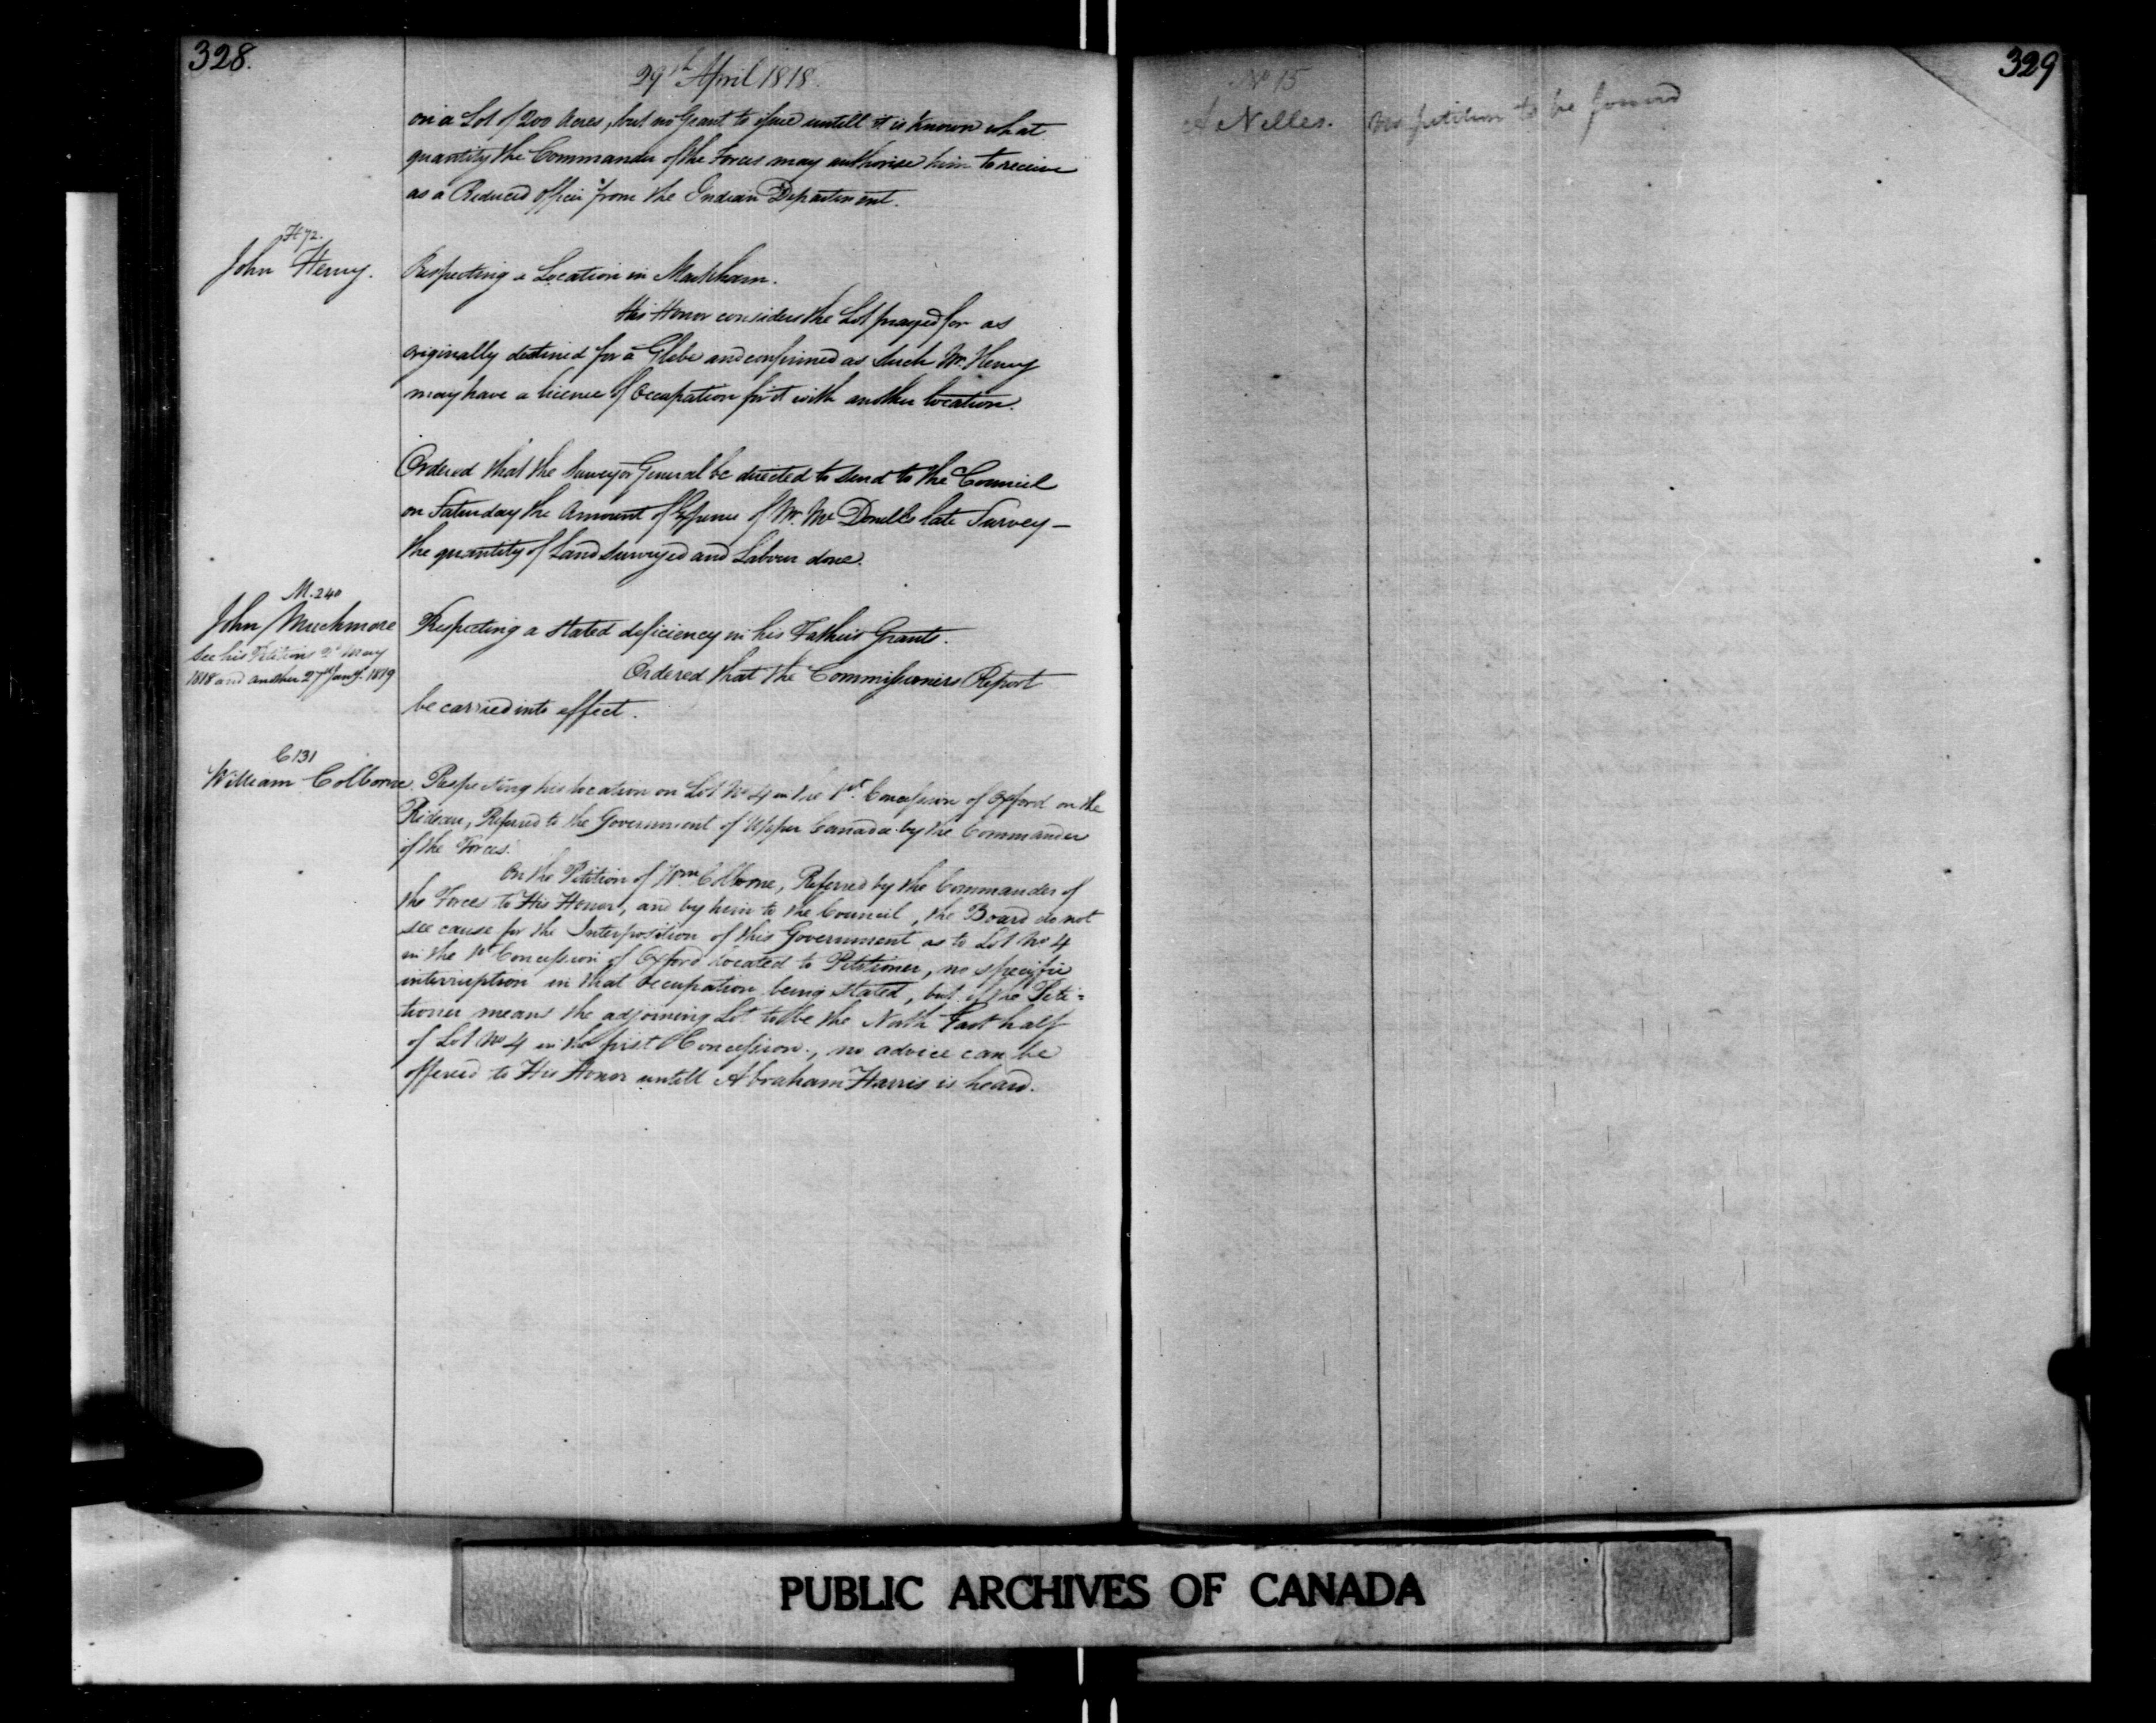 328.
29th April 1818.
on a Lot of 200 Acres, but no Grant to issue untill it is known what
quantity the Commander of the Forces may authorise him to receive
as a Reduced Officer from the Indian Department.
H 72.
John Henry.
Respecting a Location in Markham.
His Honor considers the Lot prayed for as
originally destined for a Glebe and confirmed as such Mr. Henry
may have a licence of Occupation for it with another location.
Ordered that the Surveyor General be directed to send to the Council
on Saturday the Amount of Expence of Mr. Mc Donell's late Survey —
the quantity of Land surveyed and Labour done.
M. 240
John Muchmore
See his Petitions May
1818 and another 27th Jany. 1819
Respecting a stated deficiency in his Fathers Grants.
Ordered that the Commissioners Report
be carried into effect.
C 131
William Colborne.
Respecting his location on Lot No 4 in the 1st. Concession of Oxford on the
Rideau, Referred to the Government of Upper Canada by the Commander
of the Forces.
On the Petition of Wm. Colborne, Referred by the Commander of
the Forces to His Honor, and by him to the Council, the Board do not
see cause for the Interposition of this Government as to Lot No 4
in the 1st Concession of Oxford located to Petitioner, no specific
interruption in that Occupation being stated, but if the Peti=
tioner means the adjoining Lot to be the North East half
of Lot No 4 in the first Concession, no advice can be
offered to His Honor untill Abraham Harris is heard.
329
No 15
A Nelles.
No petition to be found
PUBLIC ARCHIVES OF CANADA